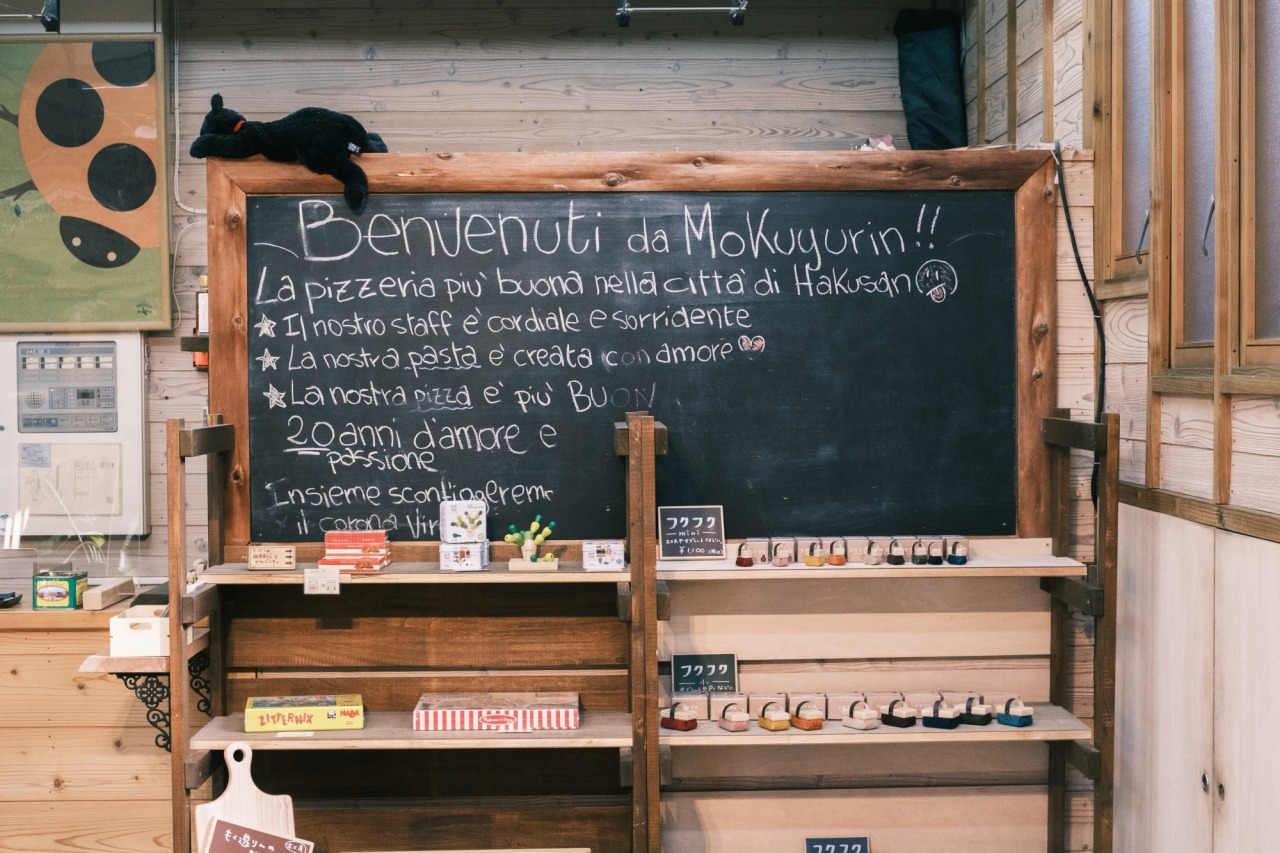 Benvenuti da Mokuyurin!!
La pizzeria più buona nella città di Hakusan
Il nostro staff è cordiale e sorridente
La nostra pasta è creata con amore
La nostra pizza è più BUON
20 anni d'amore e
passione
Insieme
il corona Vir
フクフク
mini
¥1,100
フクフク
ZITTERNIX
HABA
もく遊りーの
フクフク